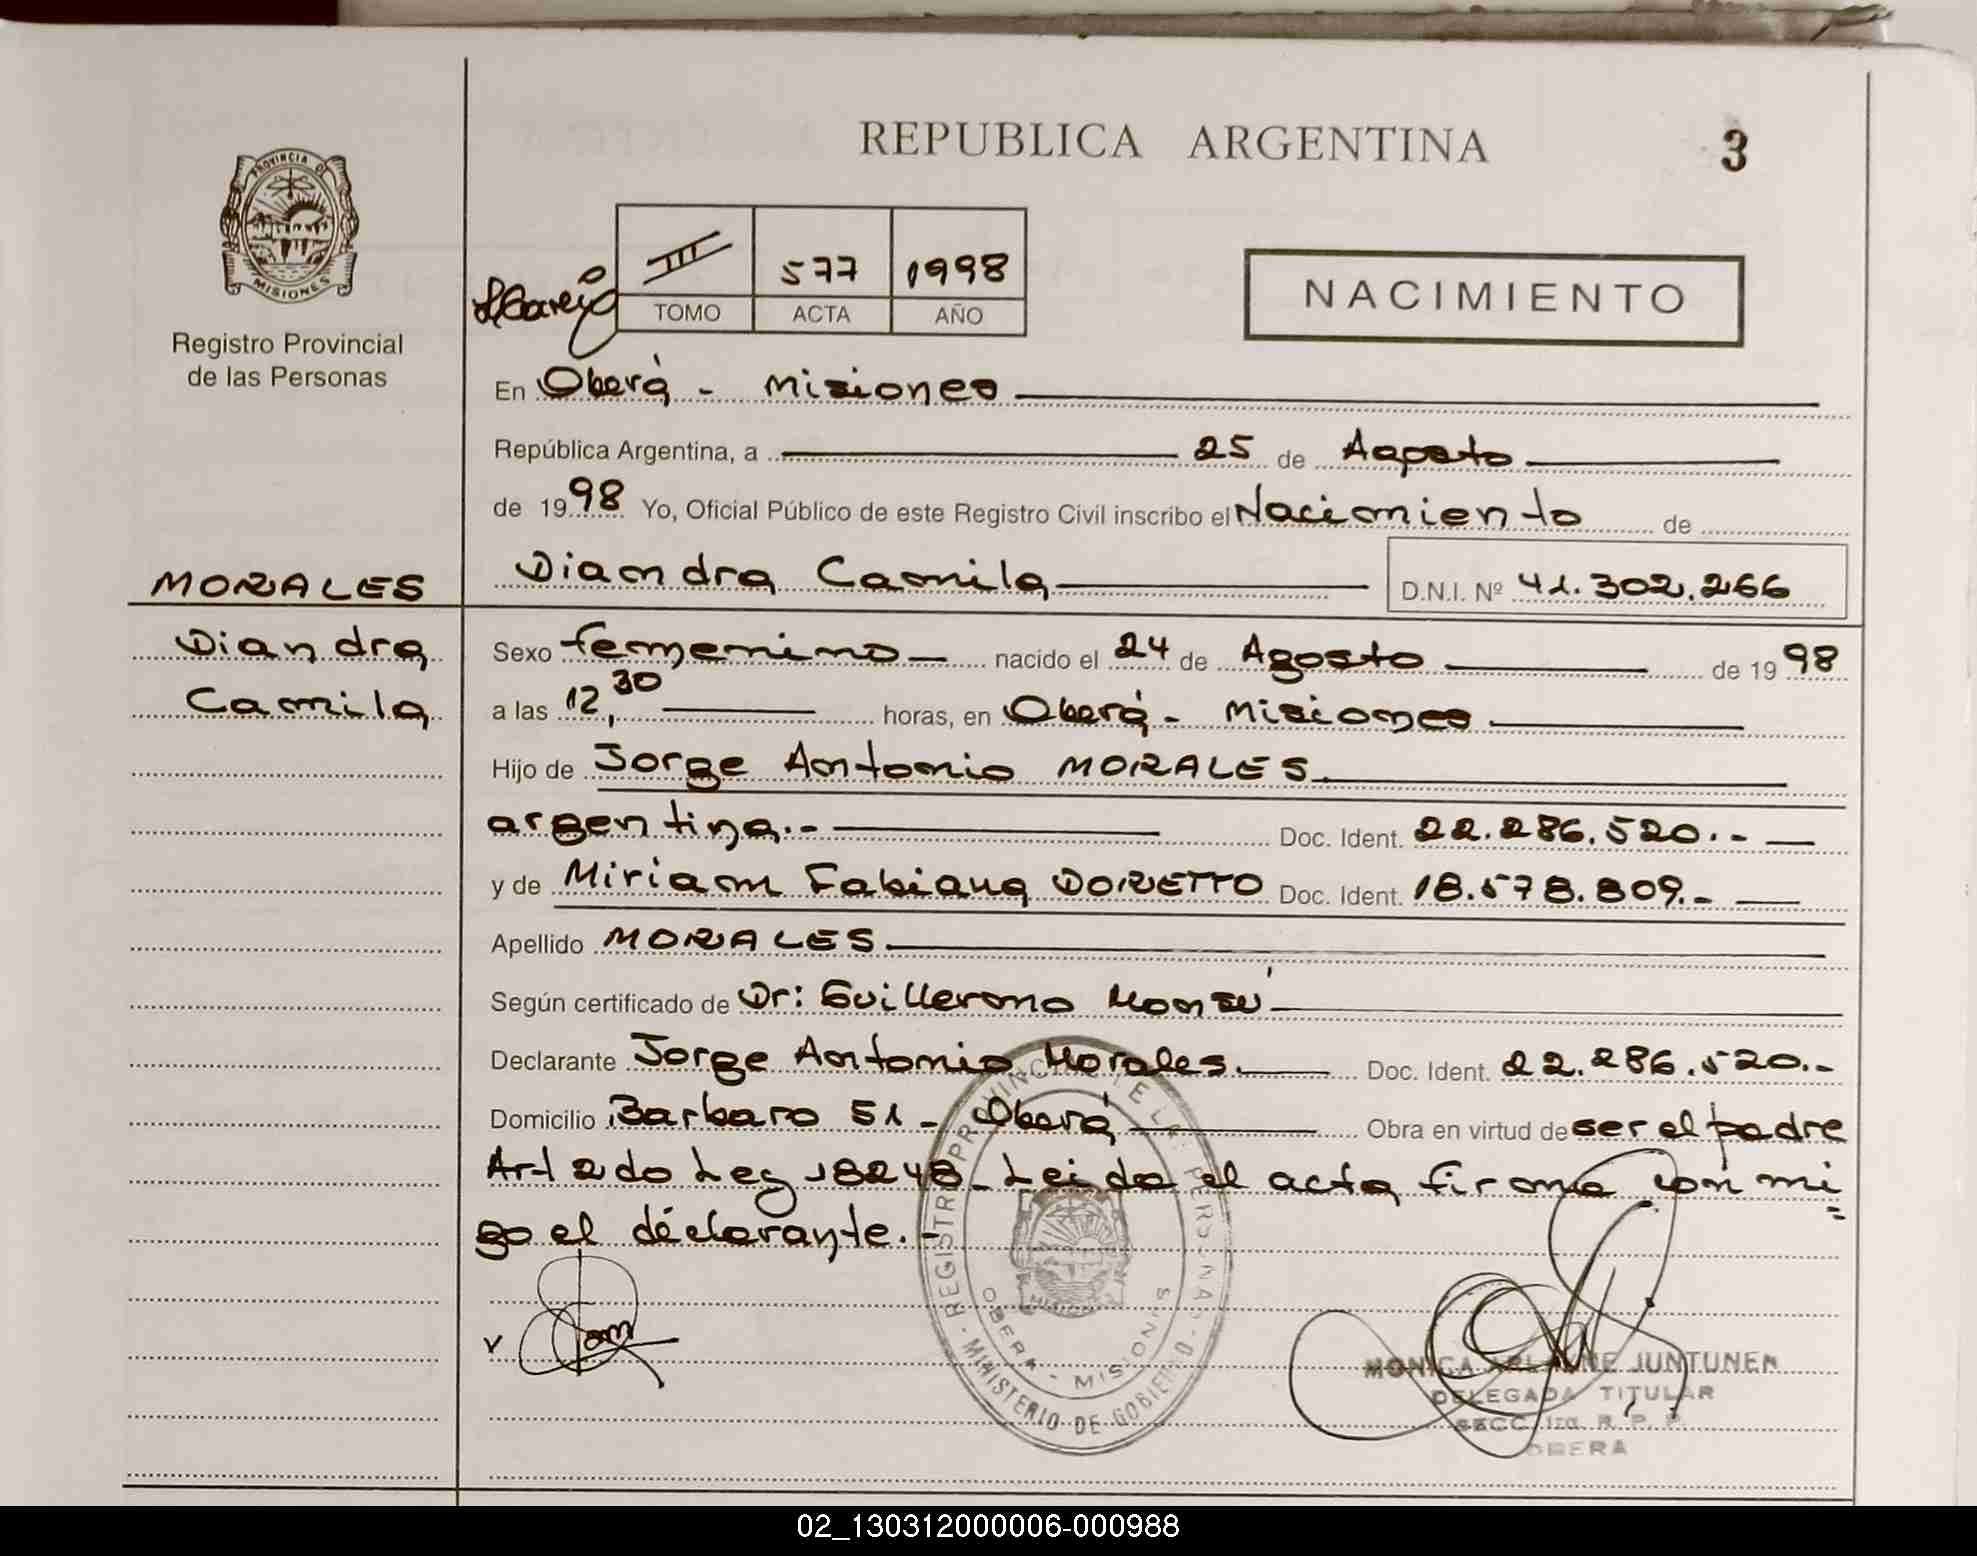 REPUBLICA ARGENTINA
3
PROVINCIA DE
MISIONES
Registro Provincial
de las Personas
III 577 1998
TOMO ACTA AÑO
NACIMIENTO
En Oberá - Misiones
República Argentina, a 25 de Agosto
de 1998 Yo, Oficial Público de este Registro Civil inscribo el Nacimiento de
Diandra Camila D.N.I. Nº 41.302.266
MORALES
Diandra
Camila
Sexo femenino nacido el 24 de Agosto de 1998
a las 12,30 horas, en Oberá - Misiones
Hijo de Jorge Antonio MORALES
argentina.- Doc. Ident. 22.286.520.-
y de Miriam Fabiana DORETTO Doc. Ident. 18.578.809.-
Apellido MORALES
Según certificado de Dr: Guillermo Monsú
Declarante Jorge Antonio Morales. Doc. Ident. 22.286.520.-
Domicilio Barbaro 51 - Oberá Obra en virtud de ser el padre
Art 2do Ley 18248 - Leida el acta firma con mi
go el declarante.-
REGISTRO PROVINCIAL DE LAS PERSONAS
MINISTERIO DE GOBIERNO
OBERA - MISIONES
MISIONES
MONICA JUNTUNEN
DELEGADA TITULAR
SECC. 1ra. R. P. P.
OBERA
02_130312000006-000988